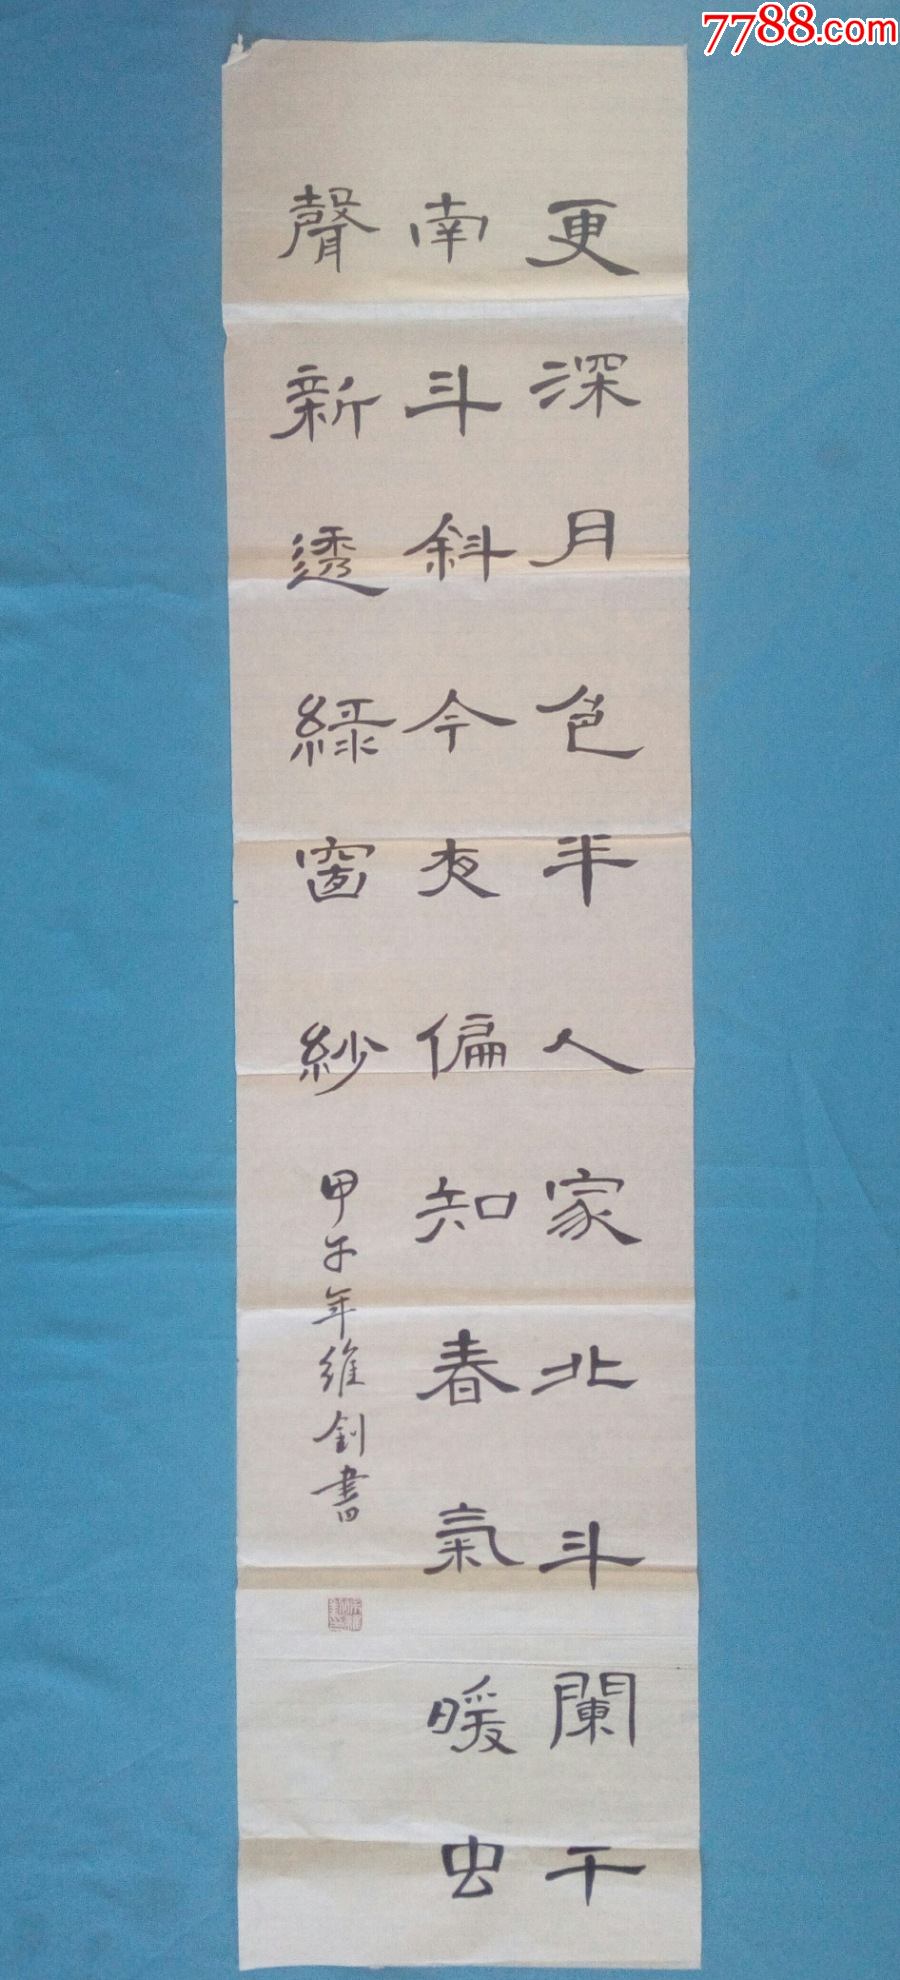 7788.com
更深月色半人家北斗闌干
南斗斜今夜偏知春氣暖虫
聲新透綠窗紗
甲午年維釗書